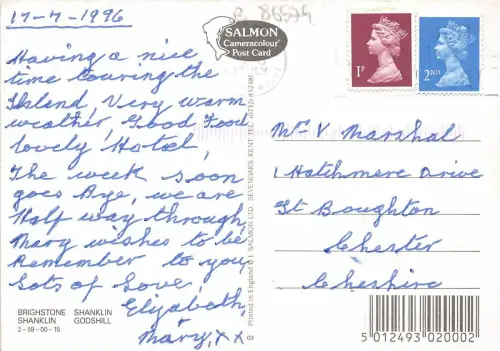 17-7-1996
R 86574
SALMON
Cameracolour
Post Card
1P
2ND
Having a nice
time touring the
Island, Very warm
weather, Good Food
lovely Hotel,
The week soon
goes Bye, we are
Half way through
Mary wishes to be
Remember to you
Lots of Love,
Elizabeth
&
Mary, x x
Mr V Marshal
1 Hatchmere Drive
Gt Boughton
Chester
Cheshire
BRIGHSTONE SHANKLIN
SHANKLIN GODSHILL
2-59-00-15
Printed in England © J. SALMON LTD. SEVENOAKS, KENT TEL: (0732) 452381
03
5 012493 020002